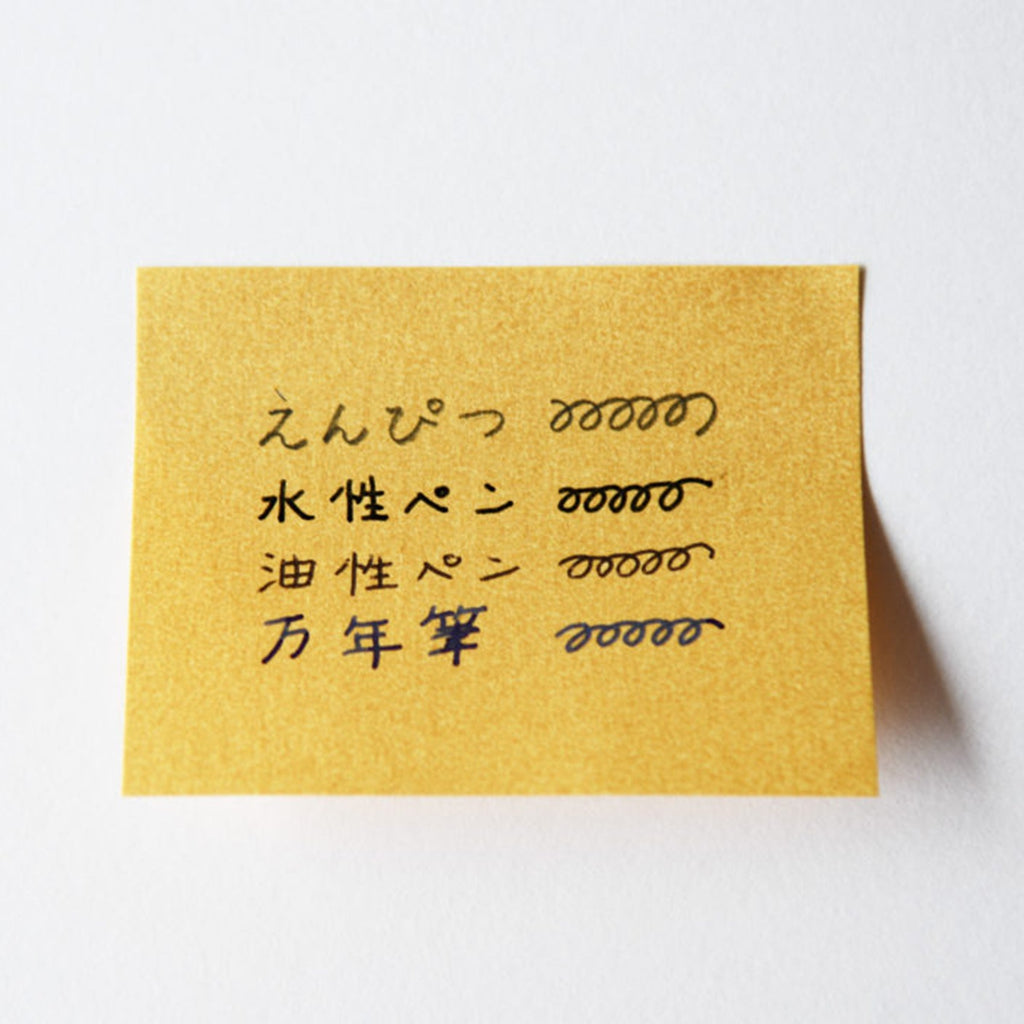 えんぴつ
水性ペン
油性ペン
万年筆